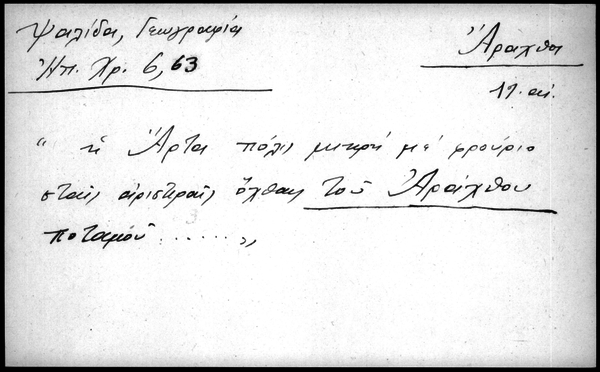 Ψαλίδα, Γεωγραφία
Ἠπ. Χρ. 6, 63
Ἄραχθα
19. αἰ.
" ἡ Ἄρτα πόλις μικρή μέ φρούριο
σταῖς ἀριστεραῖς ὄχθαις τοῦ Ἀράχθου
ποταμοῦ ....... "